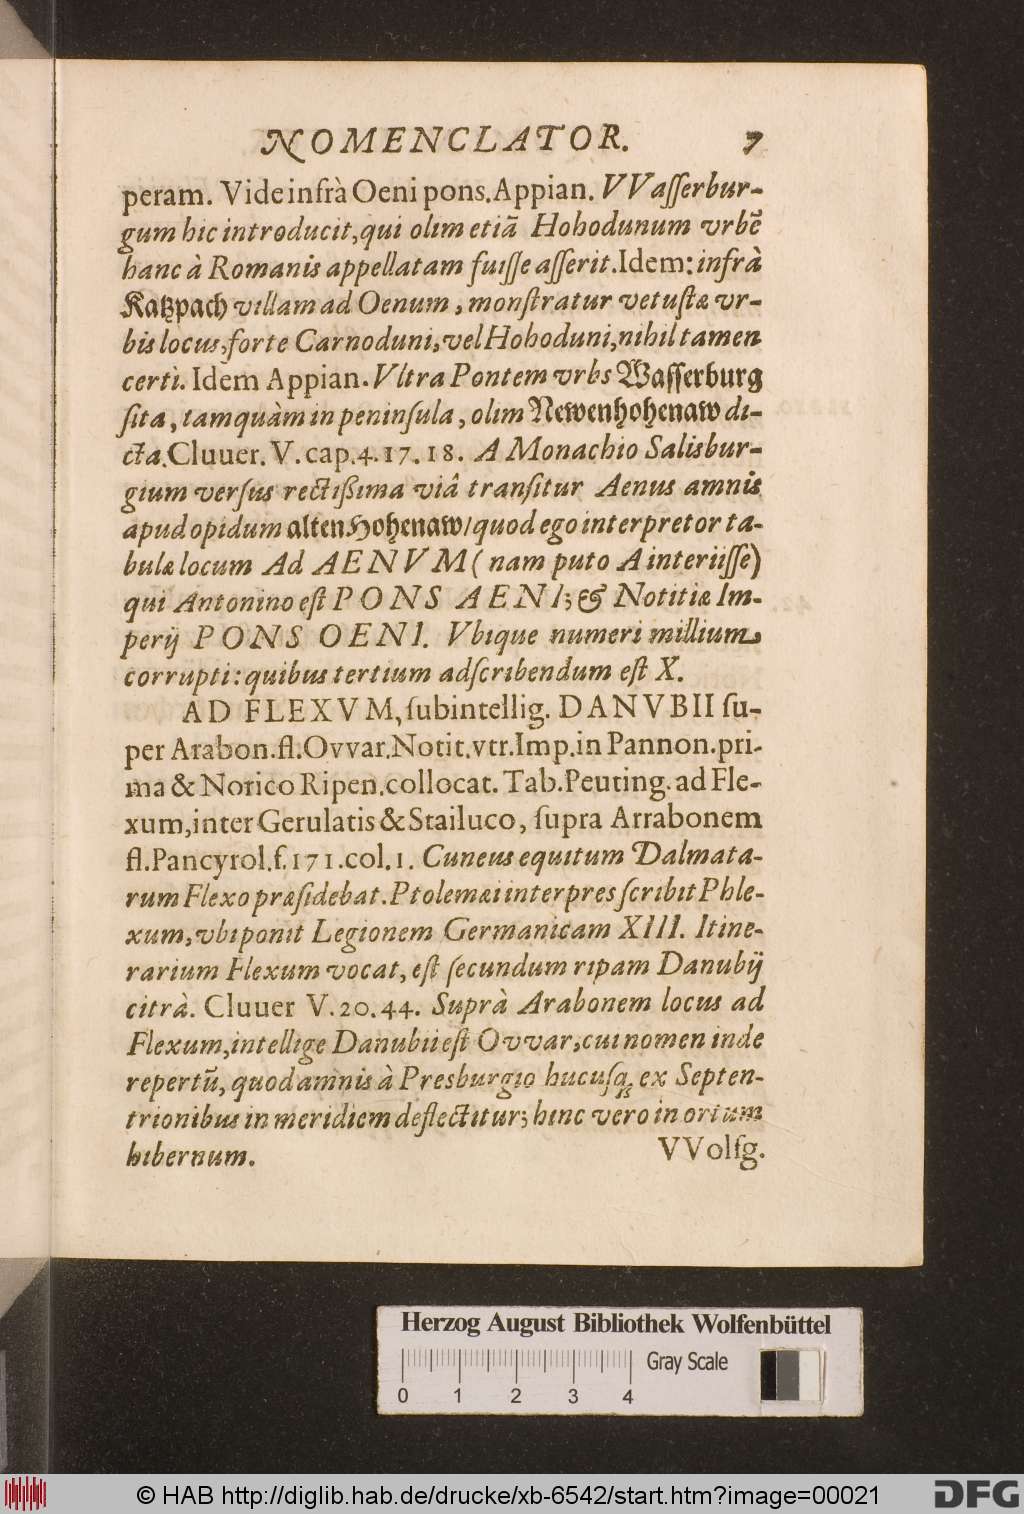 NOMENCLATOR. 7
peram. Vide infrà Oeni pons. Appian. VVaſſerbur-
gum hic introducit, qui olim etiã Hohodunum vrbẽ
hanc à Romanis appellatam fuiſſe aſſerit. Idem: infrà
Katzpach villam ad Oenum, monſtratur vetuſtæ vr-
bis locus, forte Carnoduni, vel Hohoduni, nihil tamen
certi. Idem Appian. Vltra Pontem vrbs Waſſerburg
ſita, tamquàm in peninſula, olim Newenhohenaw di-
cta. Cluuer. V. cap. 4. 17. 18. A Monachio Salisbur-
gium verſus rectißima viâ tranſitur Aenus amnis
apud opidum alten Hohenaw/ quod ego interpretor ta-
bulæ locum Ad AENVM (nam puto A interiiſſe)
qui Antonino eſt PONS AENI; & Notitiæ Im-
perij PONS OENI. Vbique numeri millium
corrupti: quibus tertium adſcribendum eſt X.
AD FLEXVM, ſubintellig. DANVBII ſu-
per Arabon. fl. Ovvar. Notit. vtr. Imp. in Pannon. pri-
ma & Norico Ripen. collocat. Tab. Peuting. ad Fle-
xum, inter Gerulatis & Stailuco, ſupra Arrabonem
fl. Pancyrol. f. 171. col. 1. Cuneus equitum Dalmata-
rum Flexo præſidebat. Ptolemæi interpres ſcribit Phle-
xum, vbi ponit Legionem Germanicam XIII. Itine-
rarium Flexum vocat, eſt ſecundum ripam Danubij
citrà. Cluuer V. 20. 44. Suprà Arabonem locus ad
Flexum, intellige Danubii eſt Ovvar, cui nomen inde
repertũ, quod amnis à Presburgio hucuſq; ex Septen-
trionibus in meridiem deflectitur; hinc vero in ortum
hibernum. VVolfg.
Herzog August Bibliothek Wolfenbüttel
Gray Scale
0 1 2 3 4
© HAB http://diglib.hab.de/drucke/xb-6542/start.htm?image=00021
DFG